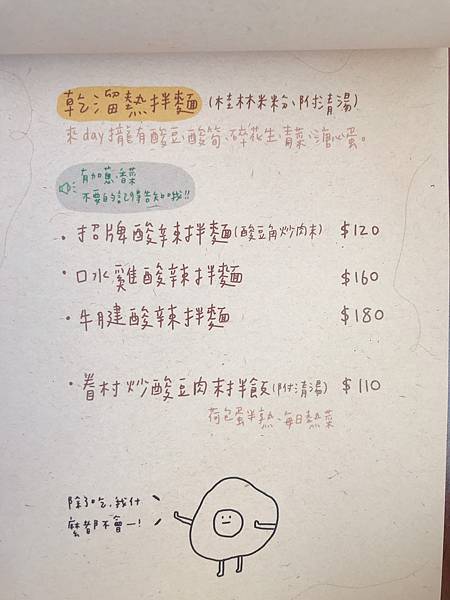 乾溜熱拌麵(桂林米粉、附清湯)
來day攏有酸豆、酸筍、碎花生、青菜、溏心蛋。
有加蔥、香菜
不要的記得告知哦!!
・招牌酸辣拌麵(酸豆角炒肉末) $120
・口水雞酸辣拌麵 $160
・牛腱酸辣拌麵 $180
・眷村炒酸豆肉末拌飯(附清湯) $110
荷包蛋半熟、每日熱菜
除了吃、我什
麼都不會一!